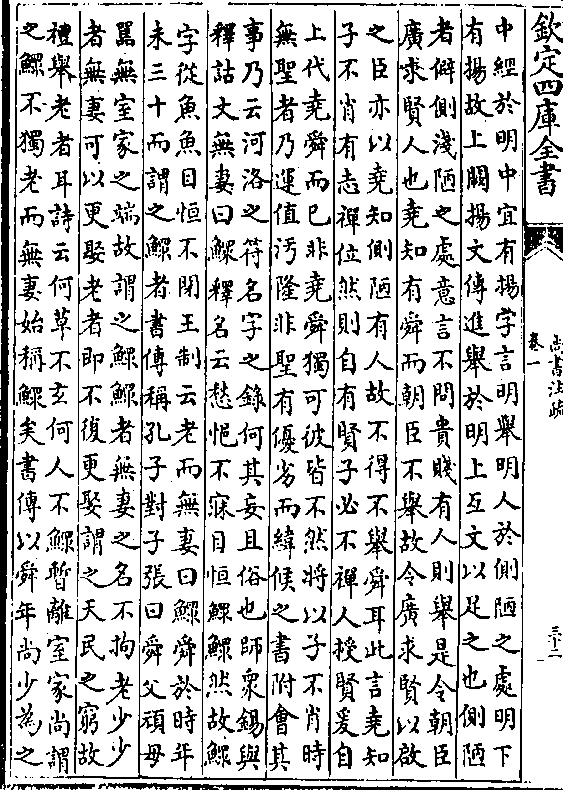 欽定四庫全書
尚書注疏
卷一
三十二
中經於明中宜有揚字言明舉明人於側陋之處明下
有揚故上闕揚文傳進舉於明上互文以足之也側陋
者僻側淺陋之處意言不問貴賤有人則舉是令朝臣
廣求賢人也堯知有舜而朝臣不舉故令廣求賢以啟
之臣亦以堯知側陋有人故不得不舉舜耳此言堯知
子不肖有志禪位然則自有賢子必不禪人授賢爰自
上代堯舜而已非堯舜獨可彼皆不然將以子不肖時
無聖者乃運值汚隆非聖有優劣而緯候之書附會其
事乃云河洛之符名字之錄何其妄且俗也師衆錫與
釋詁文無妻曰鰥釋名云愁悒不寐目恒鰥鰥然故鰥
字從魚魚目恒不閉王制云老而無妻曰鰥舜於時年
未三十而謂之鰥者書傳稱孔子對子張曰舜父頑母
嚚無室家之端故謂之鰥鰥者無妻之名不拘老少少
者無妻可以更娶老者即不復更娶謂之天民之窮故
禮舉老者耳詩云何草不玄何人不鰥暫離室家尚謂
之鰥不獨老而無妻始稱鰥矣書傳以舜年尚少為之